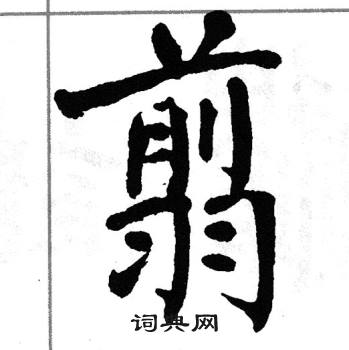 翦
词典网